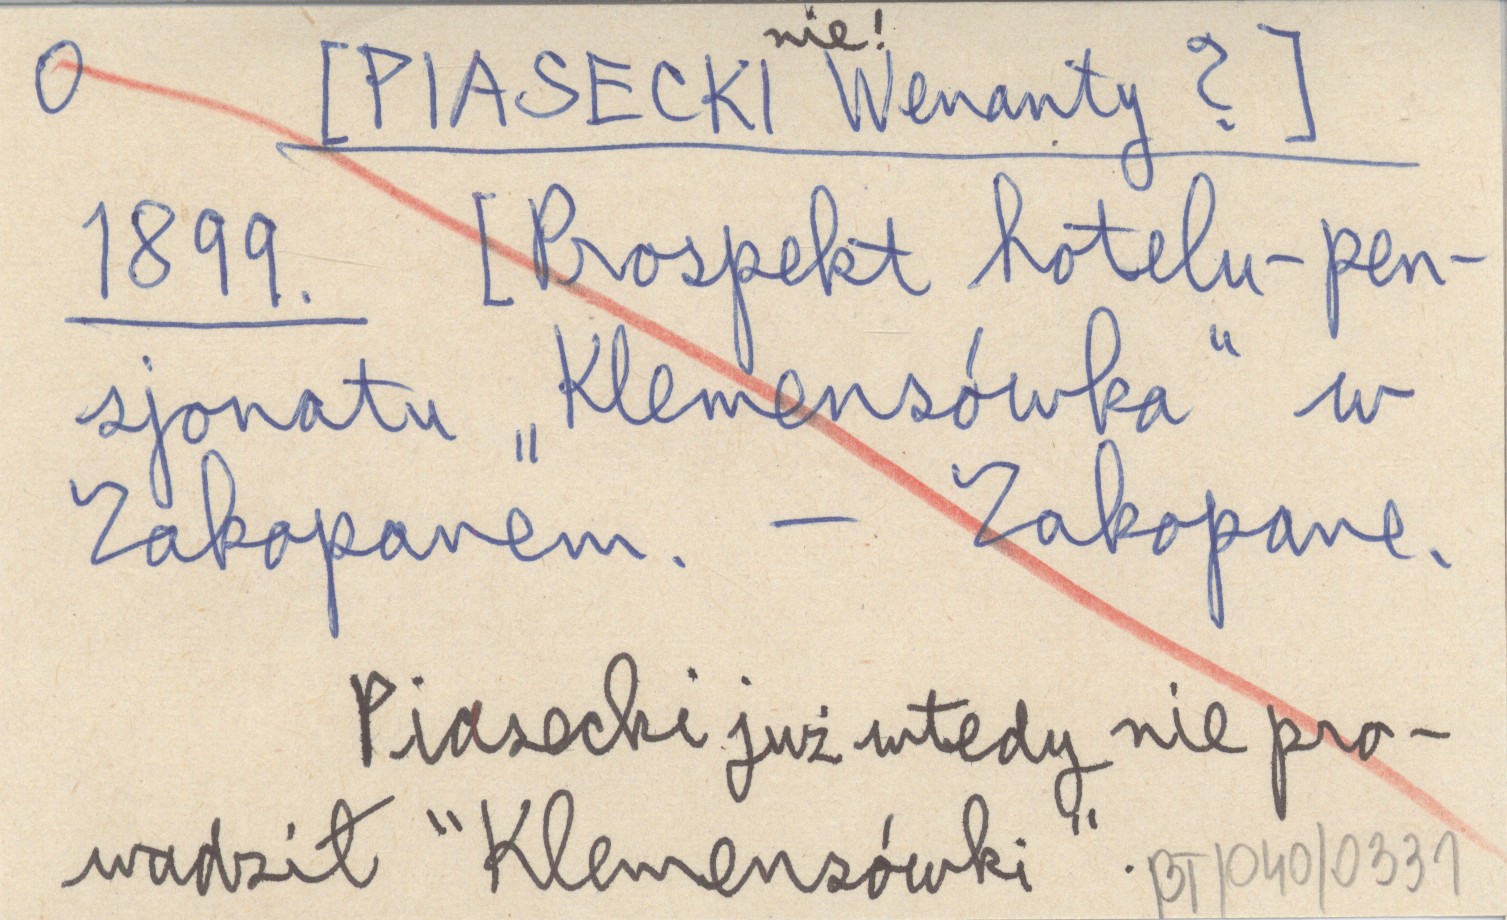 nie!
O [PIASECKI Wenanty ?]
1899. [Prospekt hotelu-pen-
sjonatu „Klemensówka“ w
Zakopanem. — Zakopane.
Piasecki już wtedy nie pro-
wadził “Klemensówki”.
BT/040/0331